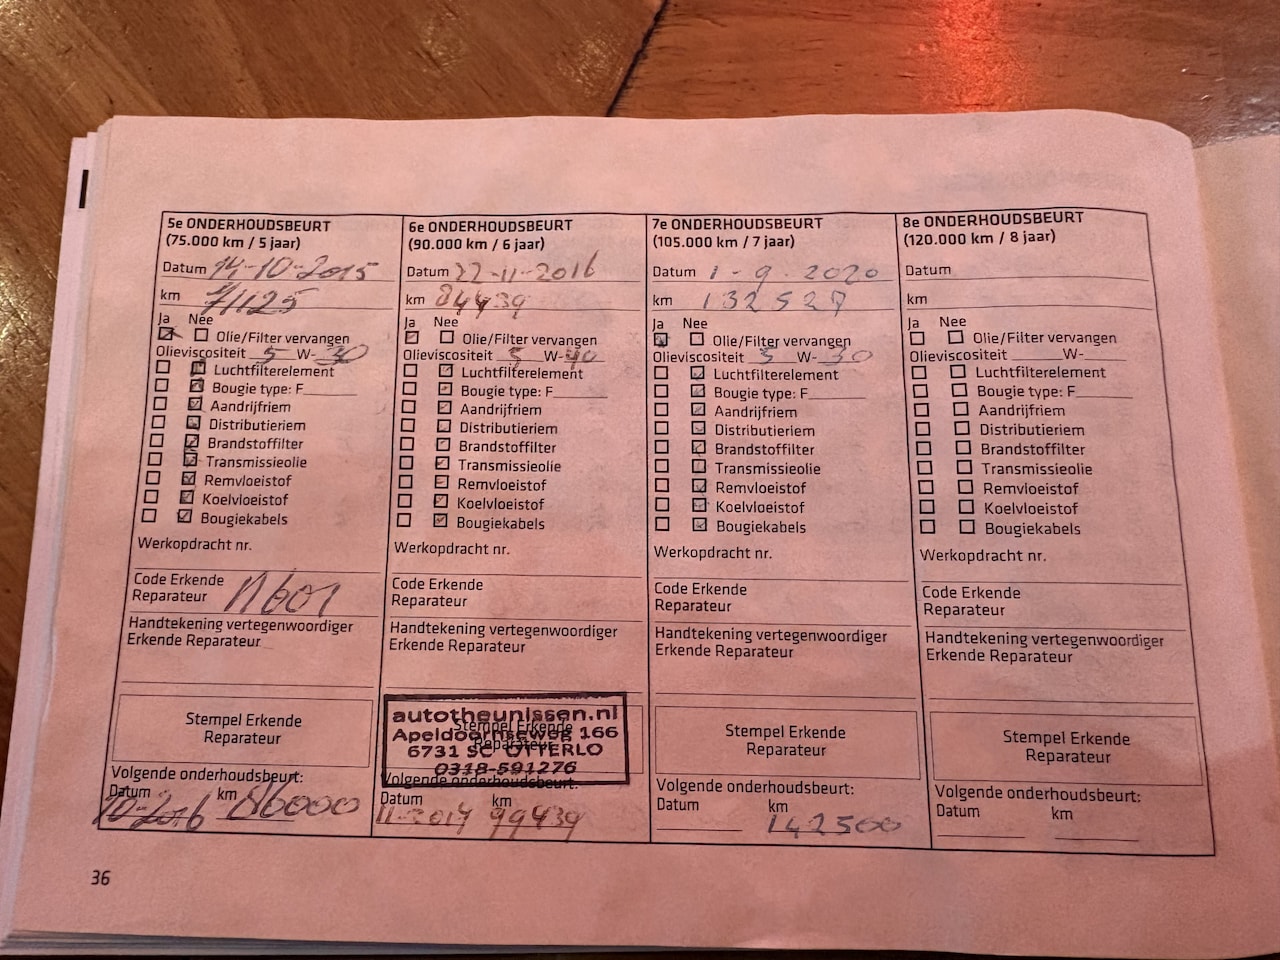 5e ONDERHOUDSBEURT
(75.000 km / 5 jaar)
Datum 14-10-2015
km 71125
Ja Nee
Olie/Filter vervangen
Olieviscositeit 5 W-30
Luchtfilterelement
Bougie type: F
Aandrijfriem
Distributieriem
Brandstoffilter
Transmissieolie
Remvloeistof
Koelvloeistof
Bougiekabels
Werkopdracht nr.
Code Erkende
Reparateur N601
Handtekening vertegenwoordiger
Erkende Reparateur
Stempel Erkende
Reparateur
Volgende onderhoudsbeurt:
Datum km
10-2016 86000
6e ONDERHOUDSBEURT
(90.000 km / 6 jaar)
Datum 22-11-2016
km 84439
Ja Nee
Olie/Filter vervangen
Olieviscositeit 5 W-40
Luchtfilterelement
Bougie type: F
Aandrijfriem
Distributieriem
Brandstoffilter
Transmissieolie
Remvloeistof
Koelvloeistof
Bougiekabels
Werkopdracht nr.
Code Erkende
Reparateur
Handtekening vertegenwoordiger
Erkende Reparateur
Stempel Erkende
Reparateur
autotheunissen.nl
Apeldoornseweg 166
6731 SC OTTERLO
0318-591276
Volgende onderhoudsbeurt:
Datum km
11-2017 99439
7e ONDERHOUDSBEURT
(105.000 km / 7 jaar)
Datum 1-9-2020
km 132527
Ja Nee
Olie/Filter vervangen
Olieviscositeit 5 W-30
Luchtfilterelement
Bougie type: F
Aandrijfriem
Distributieriem
Brandstoffilter
Transmissieolie
Remvloeistof
Koelvloeistof
Bougiekabels
Werkopdracht nr.
Code Erkende
Reparateur
Handtekening vertegenwoordiger
Erkende Reparateur
Stempel Erkende
Reparateur
Volgende onderhoudsbeurt:
Datum km
142500
8e ONDERHOUDSBEURT
(120.000 km / 8 jaar)
Datum
km
Ja Nee
Olie/Filter vervangen
Olieviscositeit W-
Luchtfilterelement
Bougie type: F
Aandrijfriem
Distributieriem
Brandstoffilter
Transmissieolie
Remvloeistof
Koelvloeistof
Bougiekabels
Werkopdracht nr.
Code Erkende
Reparateur
Handtekening vertegenwoordiger
Erkende Reparateur
Stempel Erkende
Reparateur
Volgende onderhoudsbeurt:
Datum km
36